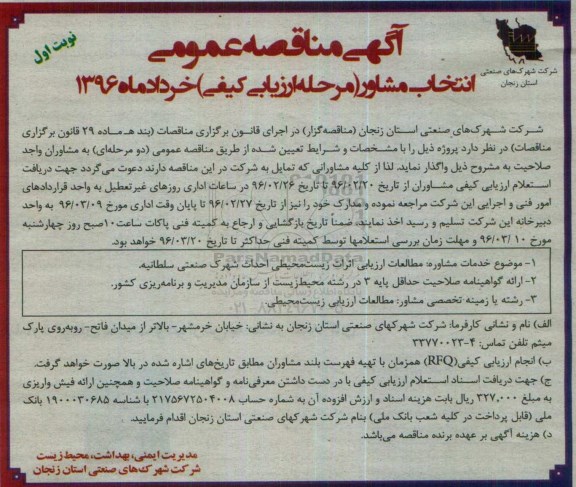 آگهی مناقصه عمومی
نوبت اول
انتخاب مشاور(مرحله ارزیابی کیفی)خردادماه ۱۳۹۶
شرکت شهرک‌های صنعتی
استان زنجان
شرکت شهرک‌های صنعتی استان زنجان (مناقصه‌گزار) در اجرای قانون برگزاری مناقصات (بند هـ ماده ۲۹ قانون برگزاری
مناقصات) در نظر دارد پروژه ذیل را با مشخصات و شرایط تعیین شده از طریق مناقصه عمومی (دو مرحله‌ای) به مشاوران واجد
صلاحیت به مشروح ذیل واگذار نماید. لذا از کلیه مشاورانی که تمایل به شرکت در این مناقصه دارند دعوت می‌گردد جهت دریافت
استعلام ارزیابی کیفی مشاوران از تاریخ ۹۶/۰۲/۲۰ تا تاریخ ۹۶/۰۲/۲۶ در ساعات اداری روزهای غیرتعطیل به واحد قراردادهای
امور فنی و اجرایی این شرکت مراجعه نموده و مدارک خود را نیز از تاریخ ۹۶/۰۲/۲۷ تا پایان وقت اداری مورخ ۹۶/۰۳/۰۹ به واحد
دبیرخانه این شرکت تسلیم و رسید اخذ نمایند، ضمناً تاریخ بازگشایی و ارجاع به کمیته فنی پاکات ساعت ۱۰صبح روز چهارشنبه
مورخ ۹۶/۰۳/۱۰ و مهلت زمان بررسی استعلامها توسط کمیته فنی حداکثر تا تاریخ ۹۶/۰۳/۲۰ خواهد بود.
۱- موضوع خدمات مشاوره: مطالعات ارزیابی اثرات زیست‌محیطی احداث شهرک صنعتی سلطانیه.
۲- ارائه گواهینامه صلاحیت حداقل پایه ۳ در رشته محیط‌زیست از سازمان مدیریت و برنامه‌ریزی کشور.
۳- رشته یا زمینه تخصصی مشاور: مطالعات ارزیابی زیست‌محیطی.
الف) نام و نشانی کارفرما: شرکت شهرکهای صنعتی استان زنجان به نشانی: خیابان خرمشهر- بالاتر از میدان فاتح- روبه‌روی پارک
میثم تلفن تماس: ۴-۳۳۷۷۰۰۲۳
ب) انجام ارزیابی کیفی(RFQ) همزمان با تهیه فهرست بلند مشاوران مطابق تاریخ‌های اشاره شده در بالا صورت خواهد گرفت.
ج) جهت دریافت اسناد استعلام ارزیابی کیفی با در دست داشتن معرفی‌نامه و گواهینامه صلاحیت و همچنین ارائه فیش واریزی
به مبلغ ۳۲۷,۰۰۰ ریال بابت هزینه اسناد و ارزش افزوده آن به شماره حساب ۲۱۷۵۶۷۲۵۰۴۰۰۸ با شناسه ۱۹۰۰۰۳۰۶۸۵ بانک
ملی (قابل پرداخت در کلیه شعب بانک ملی) بنام شرکت شهرکهای صنعتی استان زنجان اقدام فرمایید.
د) هزینه آگهی بر عهده برنده مناقصه می‌باشد.
مدیریت ایمنی، بهداشت، محیط زیست
شرکت شهرک‌های صنعتی استان زنجان
ParsNamadData